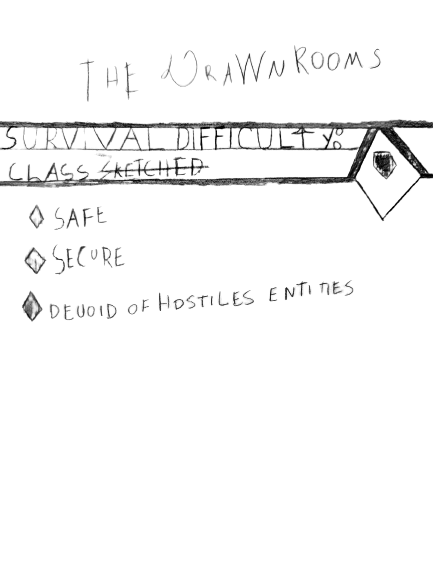 THE DRAWNROOMS
SURVIVAL DIFFICULTY:
CLASS SKETCHED
SAFE
SECURE
DEVOID OF HOSTILES ENTITIES